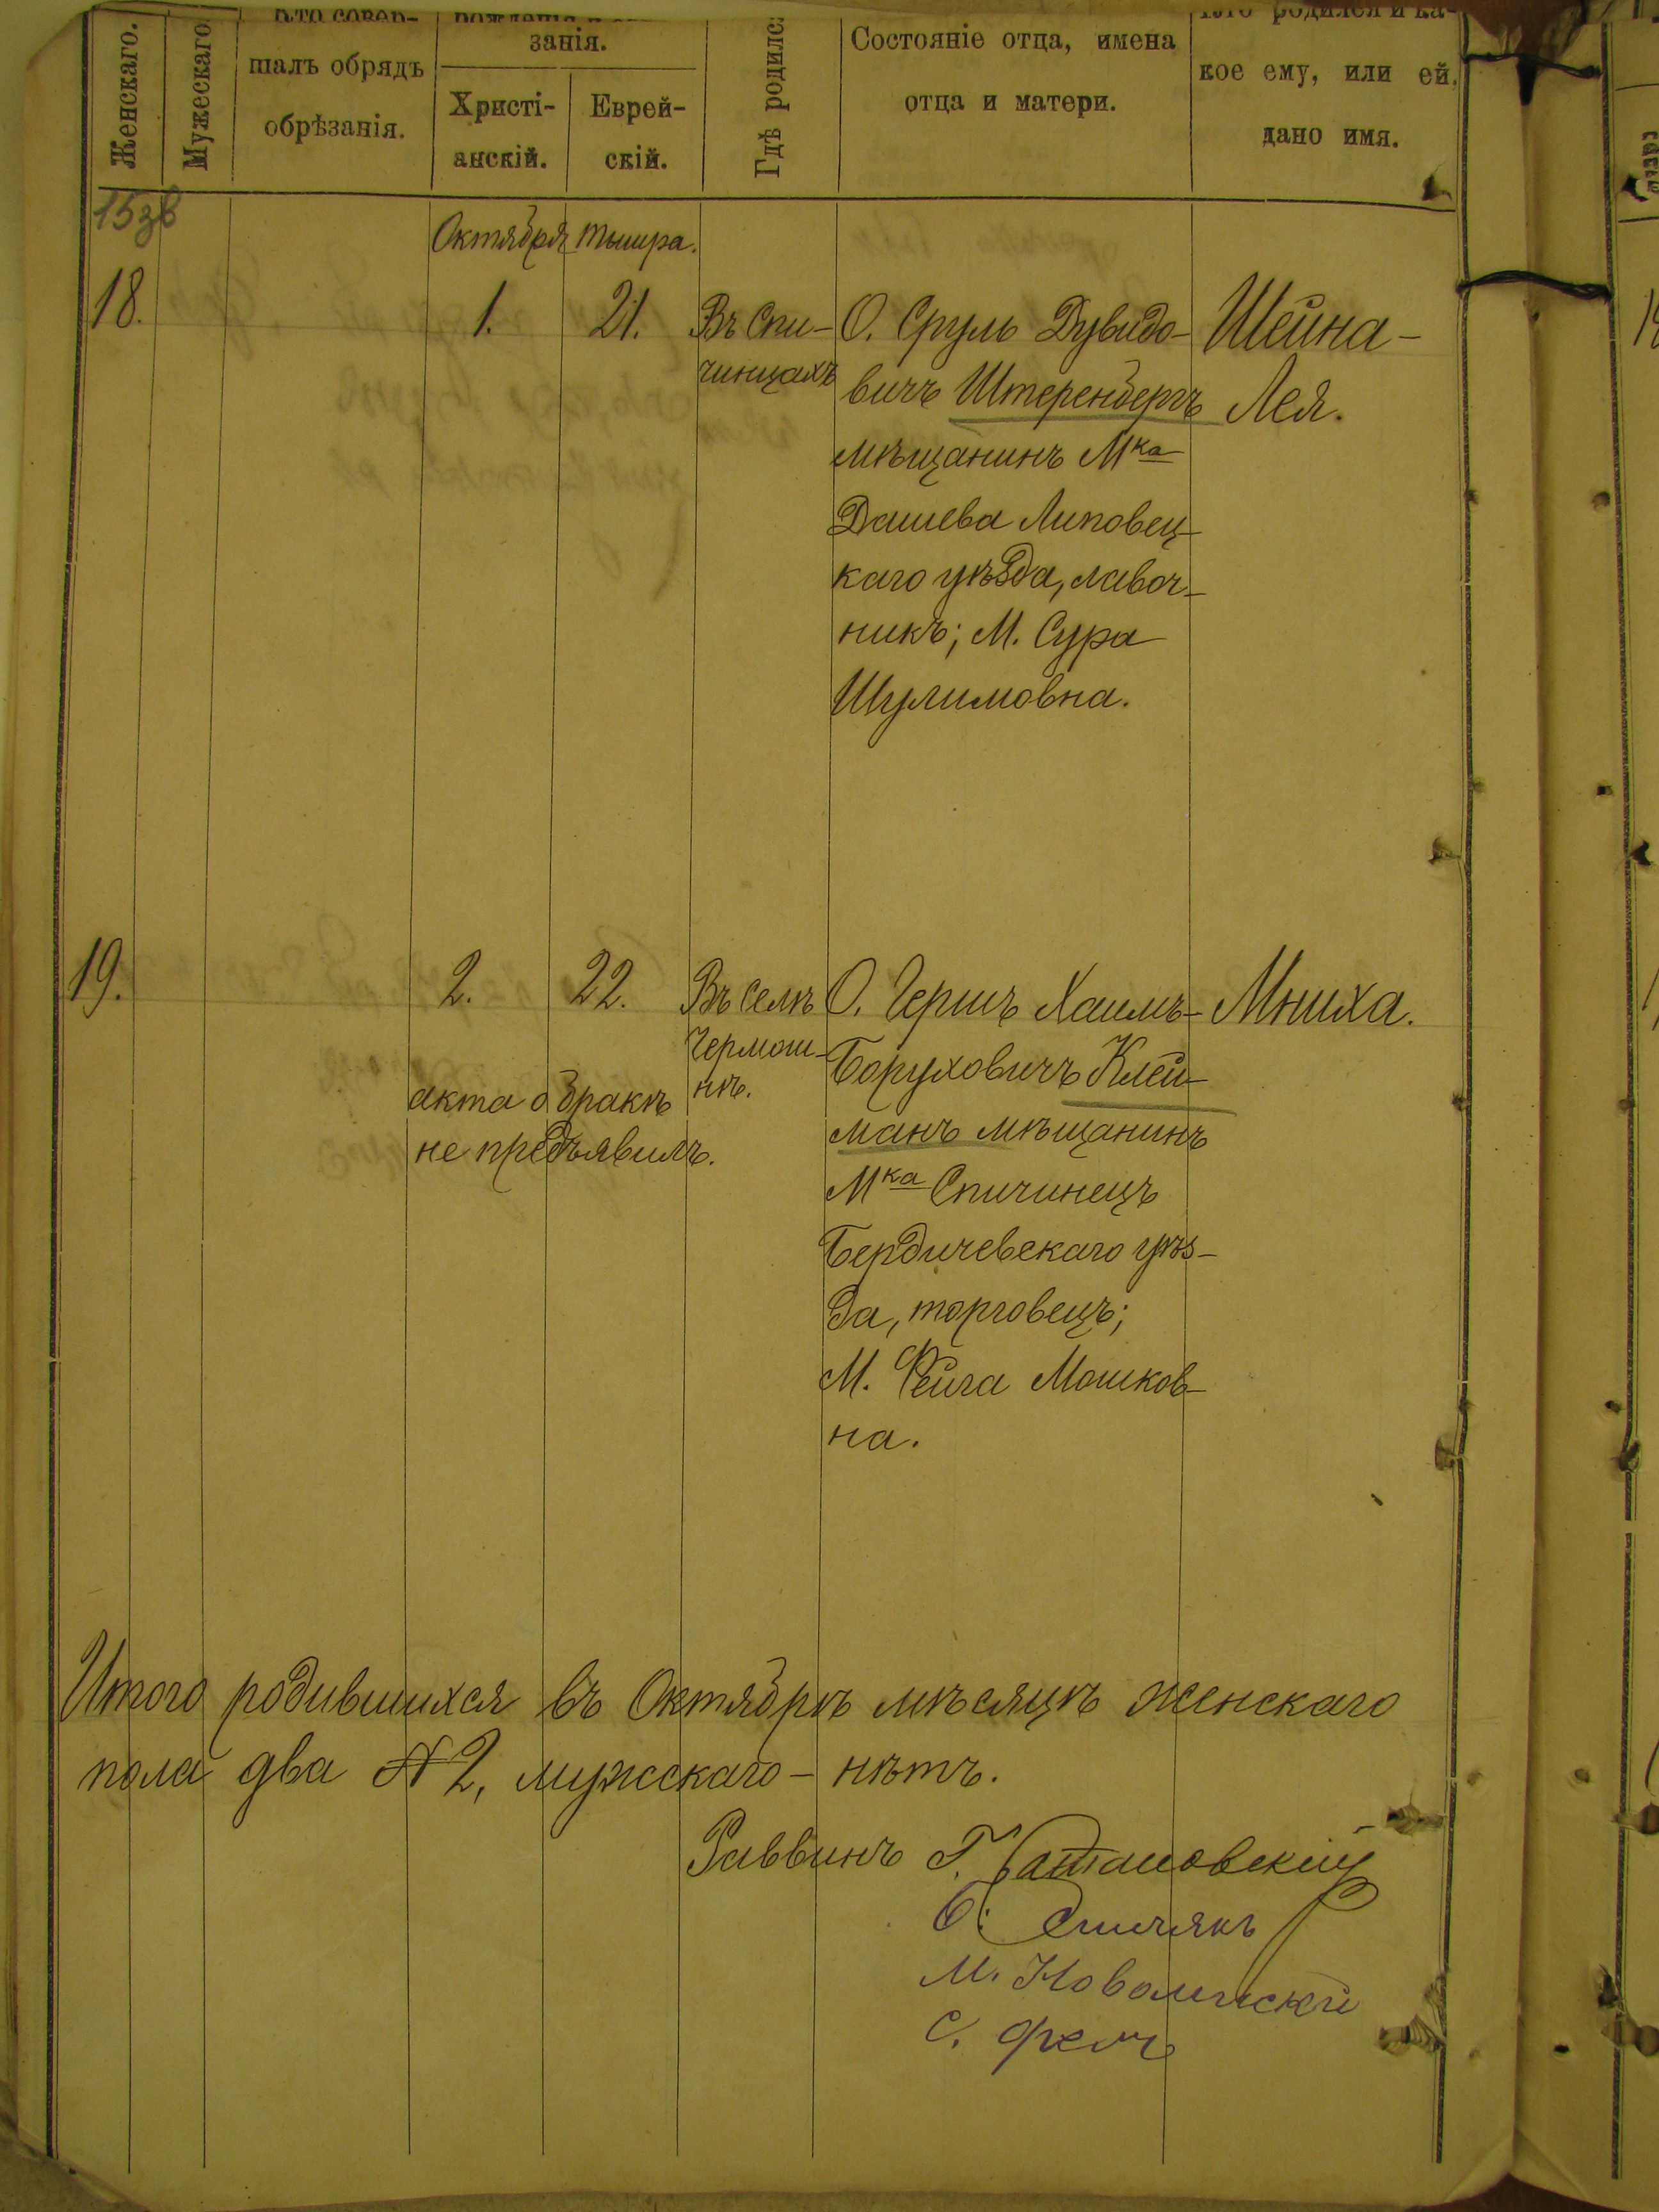 Женскаго.
Мужескаго
Кто совер-
шалъ обрядъ
обрѣзанія.
занія.
Христі-
анскій.
Еврей-
скій.
Гдѣ родилс
Состояніе отца, имена
отца и матери.
Кто родился и ка-
кое ему, или ей,
дано имя.
15зв
Октября
тышра.
18.
1.
21.
Въ Спи-
чинцахъ
О. Сруль Дувидо-
вичъ Штеренбергъ
мѣщанинъ Мка
Дашева Липовец-
каго уѣзда, лавоч-
никъ; М. Сура
Шулимовна.
Шейна-
Лея.
19.
2.
22.
акта о бракѣ
не предъявилъ.
Въ селѣ
Чермош-
нѣ.
О. Гершъ Хаимъ-
Боруховичъ Клей-
манъ мѣщанинъ
Мка Спичинецъ
Бердичевскаго уѣз-
да, торговецъ;
М. Фейга Мошков-
на.
Мниха.
Итого родившихся въ Октябрѣ мѣсяцѣ женскаго
пола два № 2, мужскаго - нѣтъ.
Раввинъ Г.
М.
С.